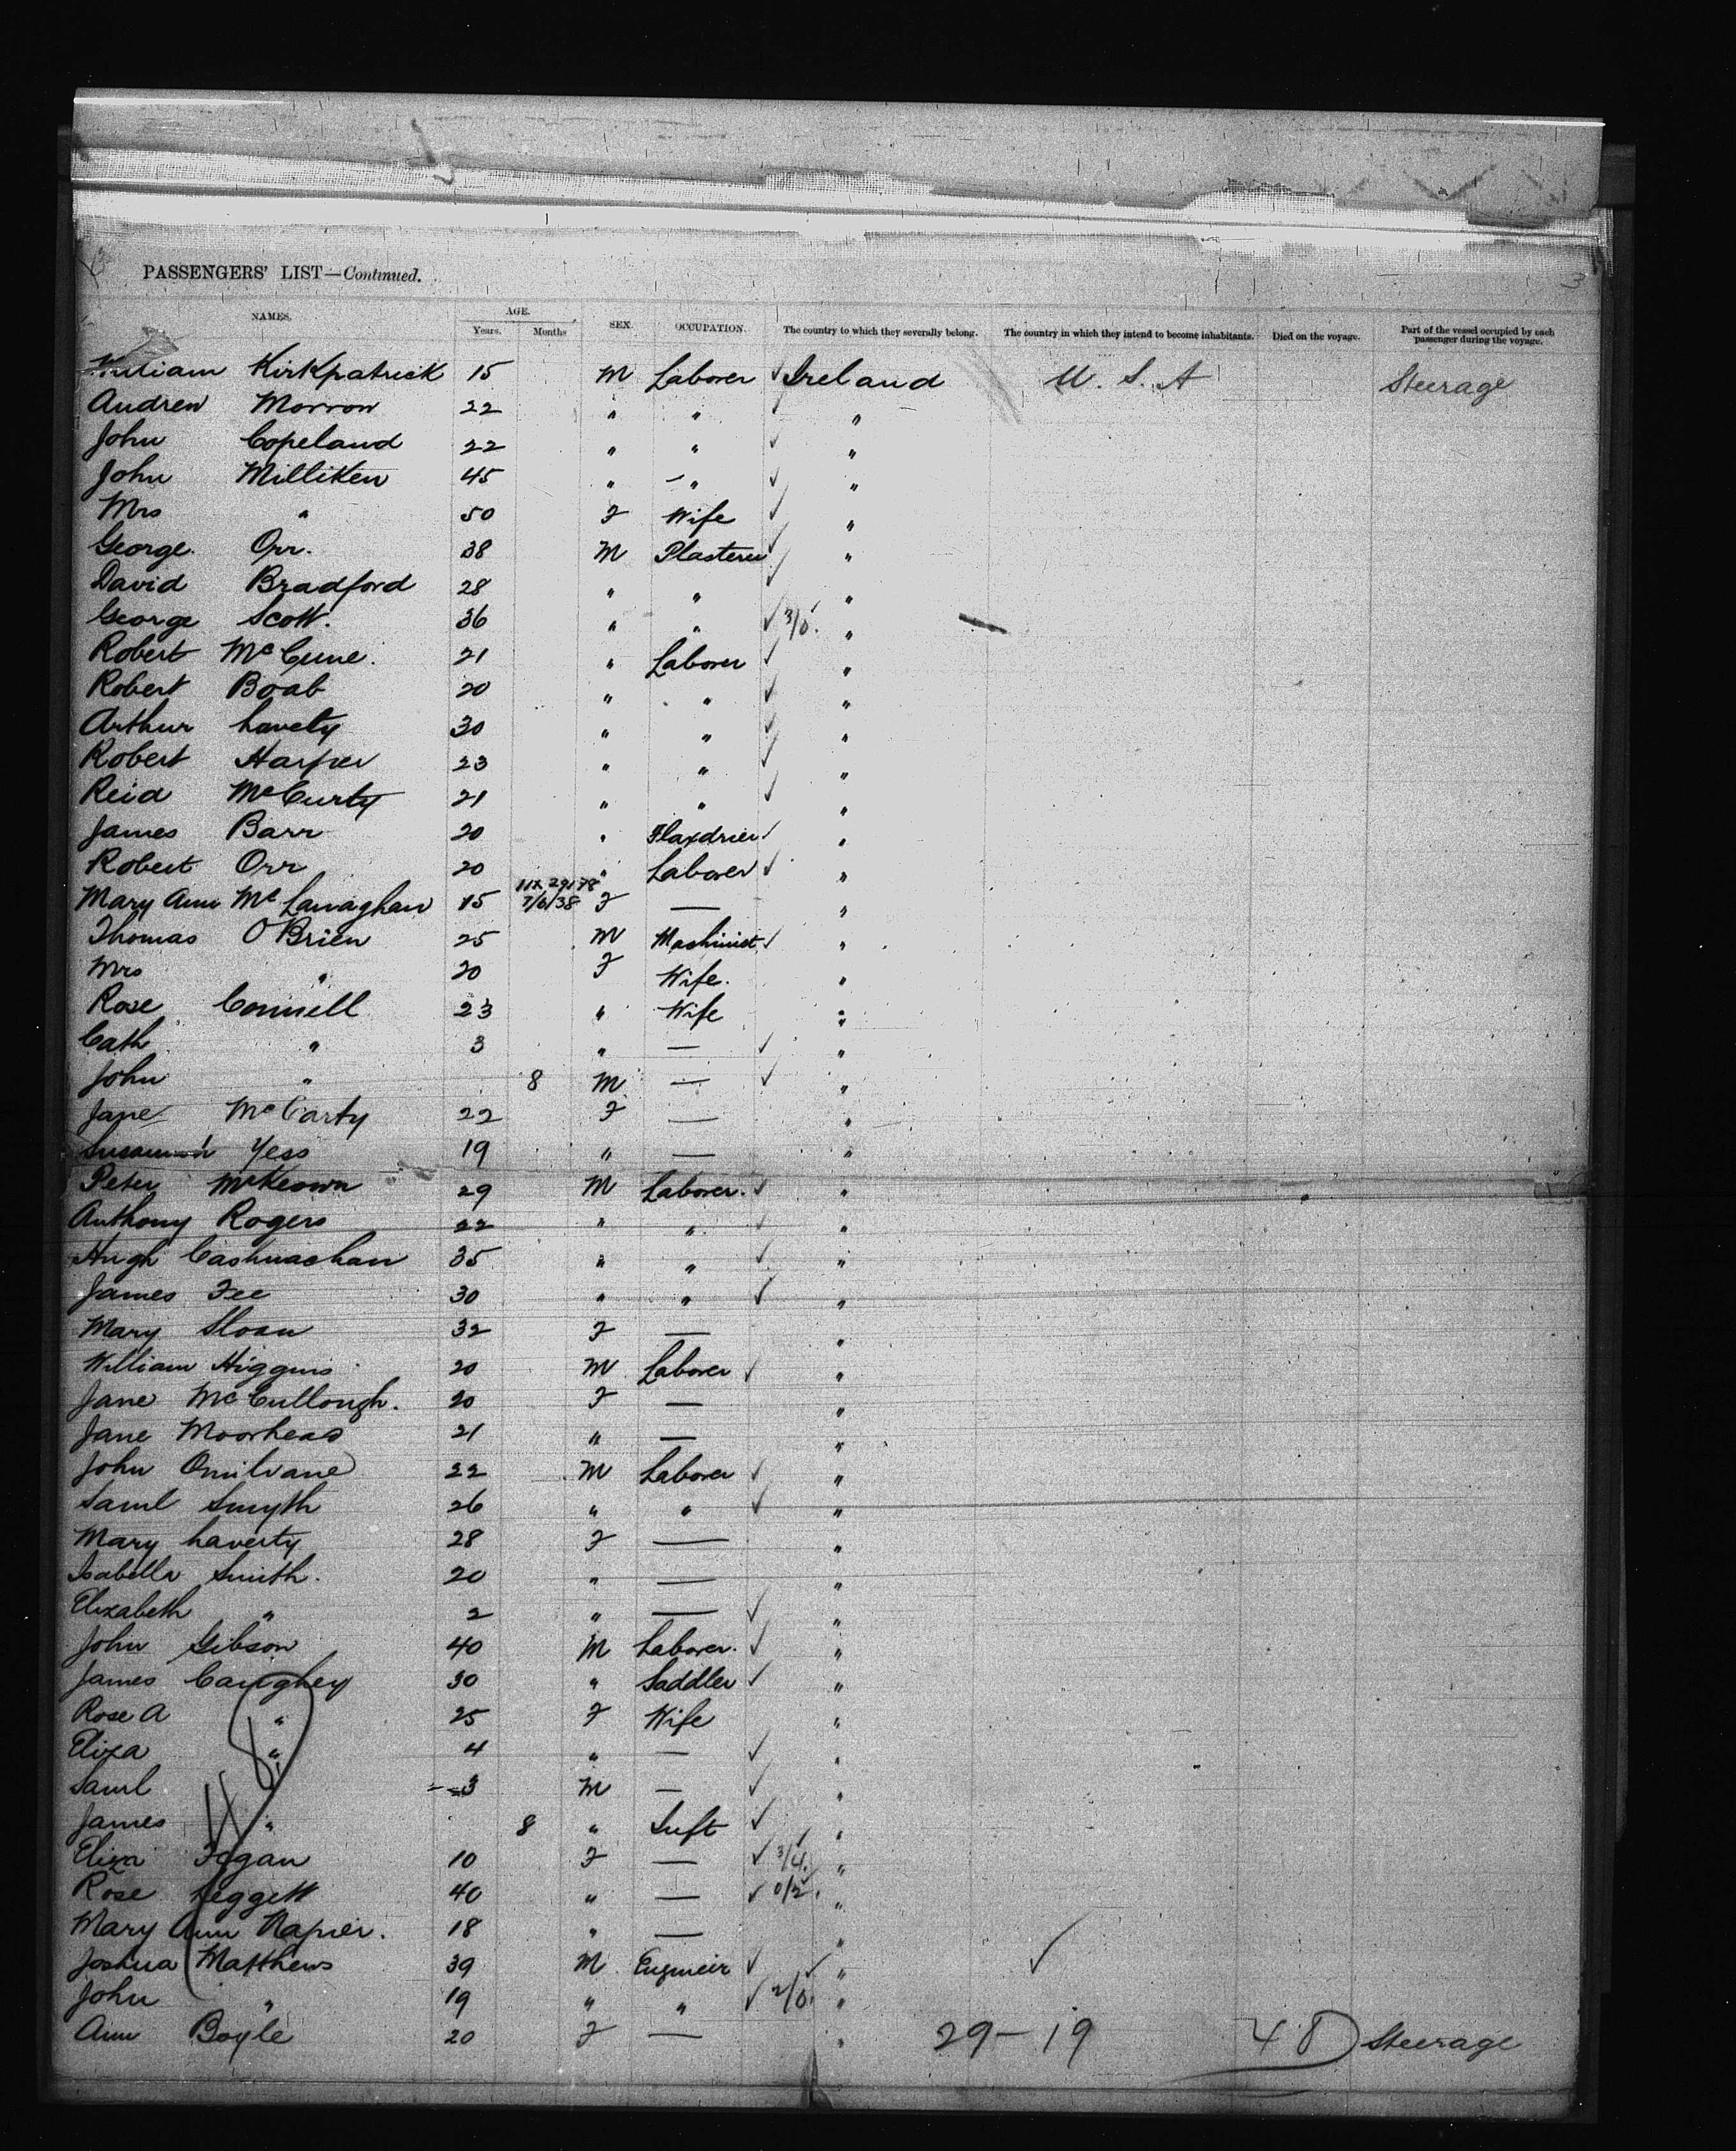 PASSENGERS' LIST—Continued. 3
NAMES. AGE. Years. Months SEX. OCCUPATION. The country to which they severally belong. The country in which they intend to become inhabitants. Died on the voyage. Part of the vessel occupied by each passenger during the voyage.
William Kirkpatrick 15 M Laborer ✓ Ireland U. S. A Steerage
Andrew Morrow 22 " " ✓ "
John Copeland 22 " " ✓ "
John Milliken 45 " " ✓ "
Mrs " 50 F Wife ✓ "
George Orr. 38 M Plasterer ✓ "
David Bradford 28 " " ✓ "
George Scott. 36 " " ✓ 3/0. "
Robert McCune. 21 " Laborer ✓ "
Robert Boab 20 " " ✓ "
Arthur Lavety 30 " " ✓ "
Robert Harper 23 " " ✓ "
Reid McCurty 21 " " ✓ "
James Barr 20 " Flaxdrier ✓ "
Robert Orr 20 " Laborer ✓ "
Mary Ann McLanaghan 15 7/6/38 F — "
Thomas O'Brien 25 M Mashinist ✓ "
Mrs " 20 F Wife. "
Rose Connell 23 " Wife "
Cath " 3 " — ✓ "
John " 8 M — ✓ "
Jane McCarty 22 F — "
Yess 19 " — "
Peter McKeown 29 M Laborer. ✓ "
Anthony Rogers 22 " " ✓ "
Hugh Cashnashan 35 " " ✓ "
James Fee 30 " " ✓ "
Mary Sloan 32 F — "
William Higgins 20 M Laborer ✓ "
Jane McCullough. 20 F — "
Jane Moorhead 21 " — "
John 22 M Laborer ✓ "
Saml Smyth 26 " " ✓ "
Mary Laverty 28 F — "
Isabella Smith. 20 " — "
Elizabeth " 2 " — ✓ "
John Gibson 40 M Laborer. ✓ "
James Caughey 30 " Saddler ✓ "
Rose A " 25 F Wife "
Eliza " 4 " — ✓ "
Saml " 3 M — ✓ "
James " 8 " Inft ✓ "
Eliza Fagan 10 F — ✓ 3/4. "
Rose Leggett 40 " — ✓ 0/2. "
Mary Ann Napier. 18 " — "
Joshua Matthews 39 M Engineir ✓ ✓ " ✓
John " 19 " " ✓ 2/0. "
Ann Boyle 20 F — " 29-19 48 Steerage